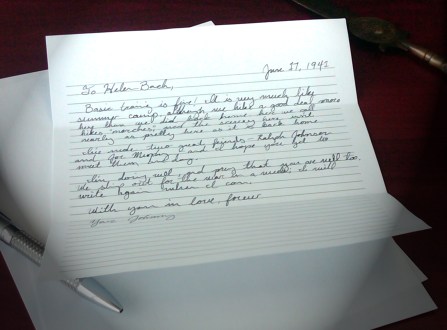 June 27, 1942
To Helen Bach,
Basic training is fine! It is very much like
summer camp although we hike a good deal more
here than we did back home. Here we call
hikes "marches" and the scenery here isn't
nearly as pretty here as it is back home.
I've made two great friends Ralph Johnson
and Joe Murphy and I hope you get to
meet them some day.
I'm doing well and pray that you are well too.
We ship out for the war in a week; I will
write again when I can.
With you in love forever
Your Johnny